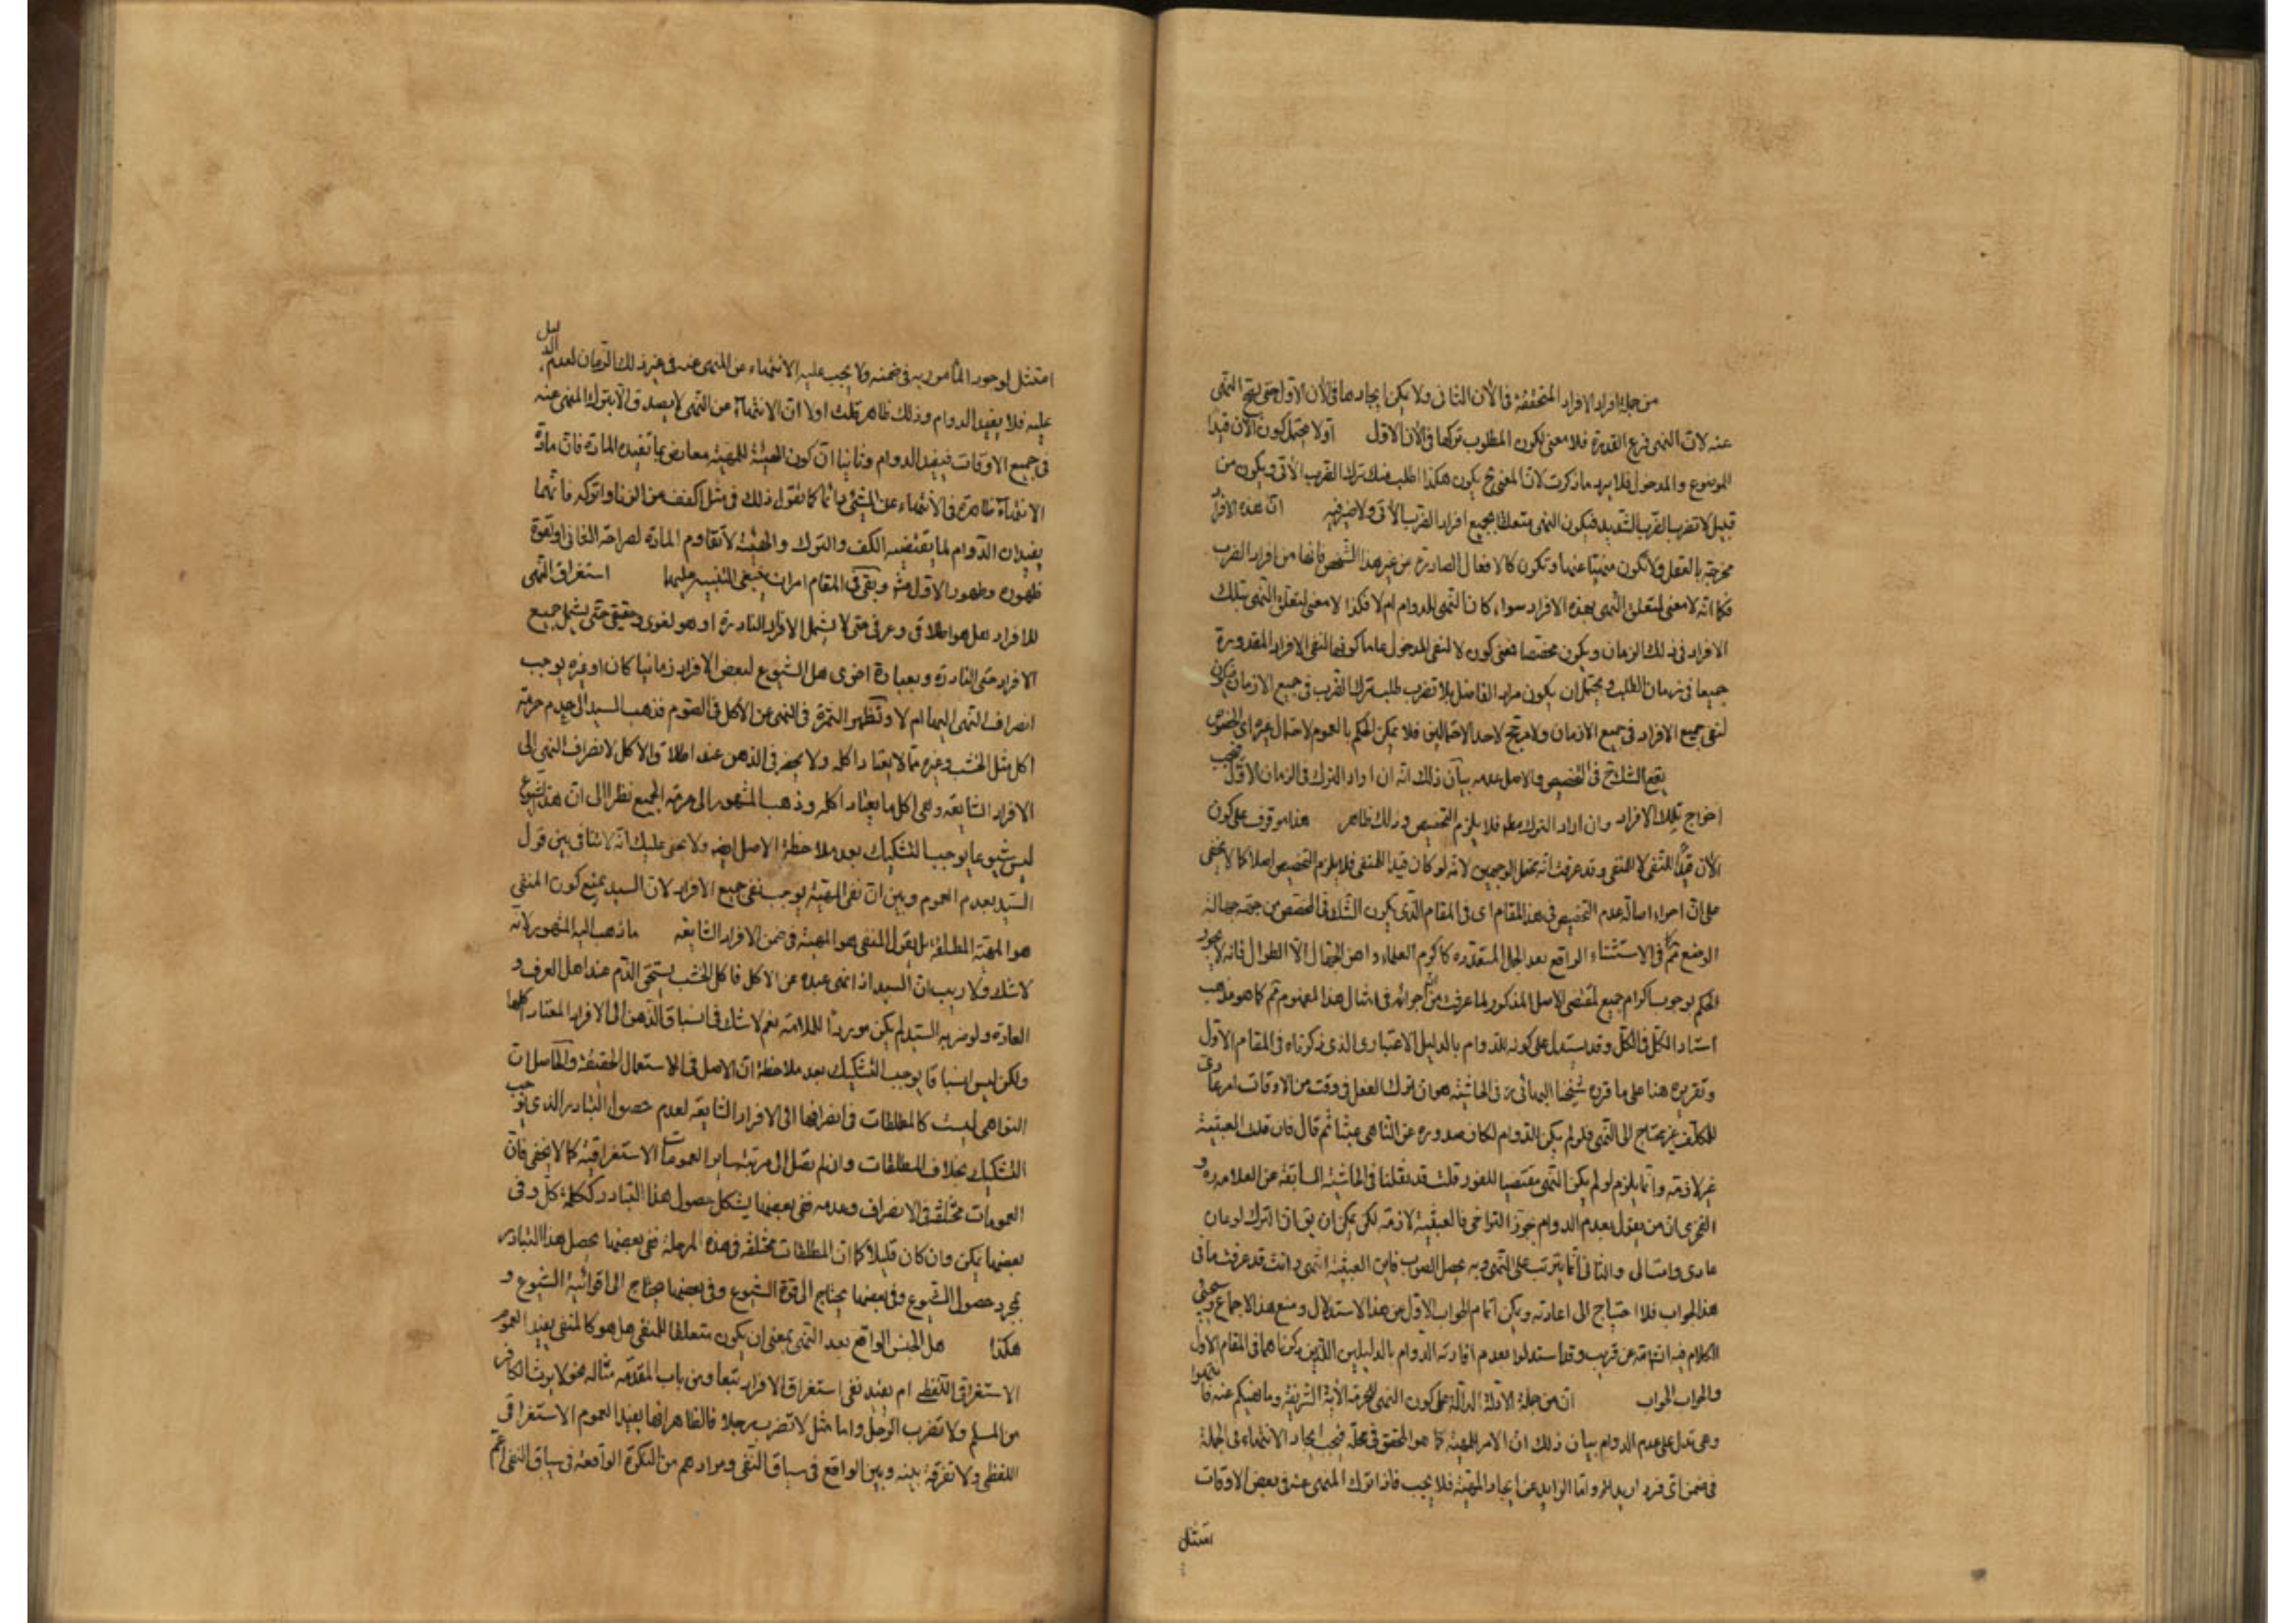 من جملة افراد الافراد المتحققة فى الآن الثانى ولا يمكن ايجادها فى الآن الاول حتى يقع النهى
عنه لان النهى فرع القدرة فلا معنى لكون المطلوب تركها فى الآن الاول اولا يحتمل كون الآن قيدا
للموضوع والمدخول فلا يرد ما ذكرت لان المعنى ح يكون هكذا اطلب منك ترك الضرب الآتى ويكون من
قبيل لا تضرب الضرب الشديد فيكون النهى متعلقا بجميع افراد الضرب الآتى ولا ضير فيه ان هذه الافراد
مخرجة بالعقل ولا تكون منهيا عنها وتكون كالافعال الصادرة من غير هذا الشخص فانها من افراد الضرب
فكما انه لا معنى لتعلق النهى بهذه الافراد سواء كان النهى للدوام ام لا فكذا لا معنى لتعلق النهى بتلك
الافراد فى ذلك الزمان ويكون مختصا فمعنى كون لا لنفى المدخول عاما كونها لنفى الافراد المقدورة
جميعا فى زمان الطلب ويحتمل ان يكون مراد القائل بلا تضرب طلب ترك الضرب فى جميع الازمان فيكون
لنفى جميع الافراد فى جميع الازمان ولا مرجح لاحد الاحتمالين فلا يمكن الحكم بالعموم لاحتمال غيره اى الخصوص
يقع الشك ح فى التخصيص والاصل عدمه بيان ذلك انه ان اراد الترك فى الزمان الاول فيجب
اخراج تلك الافراد وان اراد الترك مطلقا فلا يلزم التخصيص وذلك ظاهر هذا موقوف على كون
الآن قيدا للنفى لا للمنفى وقد عرفت انه يحتمل الوجهين لانه لو كان قيدا للمنفى فلا يلزم التخصيص اصلا كما لا يخفى
على ان اجراء اصالة عدم التخصيص فى هذا المقام اى فى المقام الذى يكون الشك فى المخصص من جهة جهالة
الوضع كما فى الاستثناء الواقع بعد الجمل المتعددة كاكرم العلماء واهن الجهال الا الطوال فانه لا يجوز
الحكم بوجوب اكرام جميع لمقتضى الاصل المذكور لما عرفت من اجرائه فى امثال هذا المفهوم ثم كما هو مذهب
استاد الكل فى الكل وقد استدل على كونه للدوام بالدليل الاعتبارى الذى ذكرناه فى المقام الاول
وتقريره هنا على ما قرره شيخنا البهائى ره فى الحاشية هو ان ترك الفعل فى وقت من الاوقات امر عادى
للمكلف غير محتاج الى النهى فلو لم يكن للدوام لكان صدوره عن الناهى عبثا ثم قال فان قلت العبثية
غير لازمة وانما يلزم لو لم يكن النهى مقتضيا للفور قلت قد نقلنا فى الحاشية السابقة عن العلامة ره و
الفخرى ان من يقول بعدم الدوام جوز التراخى فالعبثية لازمة لكن يمكن ان يق ان الترك نوعان
عادى وامتثالى والثانى انما يترتب على النهى وبه يحصل الثواب فاين العبثية انتهى وانت قد عرفت ما فى
هذا الجواب فلا احتياج الى اعادته ويمكن اتمام الجواب الاول من هذا الاستدلال ومنع هذا الاجماع وسيجئ
الكلام فيه انشاءالله عن قريب وقد استدلوا بعدم افادته الدوام بالدليلين اللذين ذكرناهما فى المقام الاول
والجواب الجواب ان من جملة الادلة الدالة على كون النهى للحرمة الآية الشريفة وما نهيكم عنه فانتهوا
وهى تدل على عدم الدوام بيان ذلك ان الامر للمهية كما هو المحقق فى محله فيجب ايجاد الانتهاء فى الجملة
فى ضمن اى فرد اريد للامر واما الزايد عن ايجاد المهية فلا يجب فاذا ترك المنهى عنه فى بعض الاوقات
امتثل
امتثل لوجود المأمور به فى ضمنه ولا يجب عليه الانتهاء عن المنهى عنه فى غير ذلك الزمان لعدم الدليل
عليه فلا يفيد الدوام وذلك ظاهر قلت اولا ان الانتهاء عن النهى لا يصدق الا بترك المنهى عنه
فى جميع الاوقات فيفيد الدوام وثانيا ان كون الهيئة للمهية معارض بما تفيده المادة فان مادة
الانتهاء ظاهرة فى الانتهاء عن الشئ دائما كما نقول ذلك فى مثل اكفف عن الزنا واتركه فانهما
يفيدان الدوام لما يقتضيه الكف والترك والهيئة لا تقاوم المادة لصراحة الثانى او لقوة
ظهوره وظهور الاول منه وبقى فى المقام امران ينبغى التنبيه عليهما استغراق النهى
للافراد هل هو اطلاقى وعرفى حتى لا يشمل الافراد النادرة او هو لغوى وحقيقى حتى يشمل جميع
الافراد حتى النادرة وبعبارة اخرى هل الشيوع لبعض الافراد زمانيا كان او غيره يوجب
انصراف النهى اليها ام لا وتظهر الثمرة فى النهى عن الاكل فى الصوم فذهب السيد الى عدم حرمة
اكل مثل الخشب وغيره مما لا يعتاد اكله ولا يحضر فى الذهن عند اطلاق الاكل لانصراف النهى الى
الافراد الشايعة وهى اكل ما يعتاد اكله وذهب المشهور الى حرمة الجميع نظرا الى ان هذا الشيوع
ليس شيوعا يوجب التشكيك بعد ملاحظة الاصل ايضا ولا يخفى عليك انه لا تنافى بين قول
السيد بعدم العموم وبين ان نفى المهية يوجب نفى جميع الافراد لان السيد يمنع كون المنفى
هو المهية المطلقة بل يقول المنفى هو المهية فى ضمن الافراد الشايعة ما ذهب اليه المشهور لانه
لا شك ولا ريب ان السيد اذا نهى عبده عن الاكل فاكل الخشب يستحق الذم عند اهل العرف و
العادة ولو ضربه السيد لم يكن موردا للملامة نعم لا شك فى انسباق الذهن الى الافراد المعتاد اكلها
ولكن ليس انسباقا يوجب التشكيك بعد ملاحظة ان الاصل فى الاستعمال الحقيقة والحاصل ان
النواهى ليست كالمطلقات فى انصرافها الى الافراد الشايعة لعدم حصول التبادر الذى يوجب
التشكيك بخلاف المطلقات وان لم يصل الى مرتبة ساير العمومات الاستغراقية كما لا يخفى فان
العمومات مختلفة فى الانصراف وعدمه ففى بعضها يشكل حصول هذا التبادر ككلمة كل وفى
بعضها يمكن وان كان قليلا كما ان المطلقات مختلفة فى هذه المرحلة ففى بعضها يحصل هذا التبادر
بمجرد حصول الشيوع وفى بعضها يحتاج الى قوة الشيوع وفى بعضها يحتاج الى اقوائية الشيوع و
هكذا هل الجنس الواقع بعد النهى بمعنى ان يكون متعلقا للنفى هل هو كالمنفى يفيد العموم
الاستغراقى اللفظى ام يفيد نفى استغراق الافراد تبعا ومن باب المقدمة مثاله نحو لا يرث الكافر
من المسلم ولا تضرب الرجل واما مثل لا تضرب رجلا فالظاهر انها يفيد العموم الاستغراقى
اللفظى ولا تفرقة بينه وبين الواقع فى سياق النفى ومرادهم من النكرة الواقعة فى سياق النفى اعم